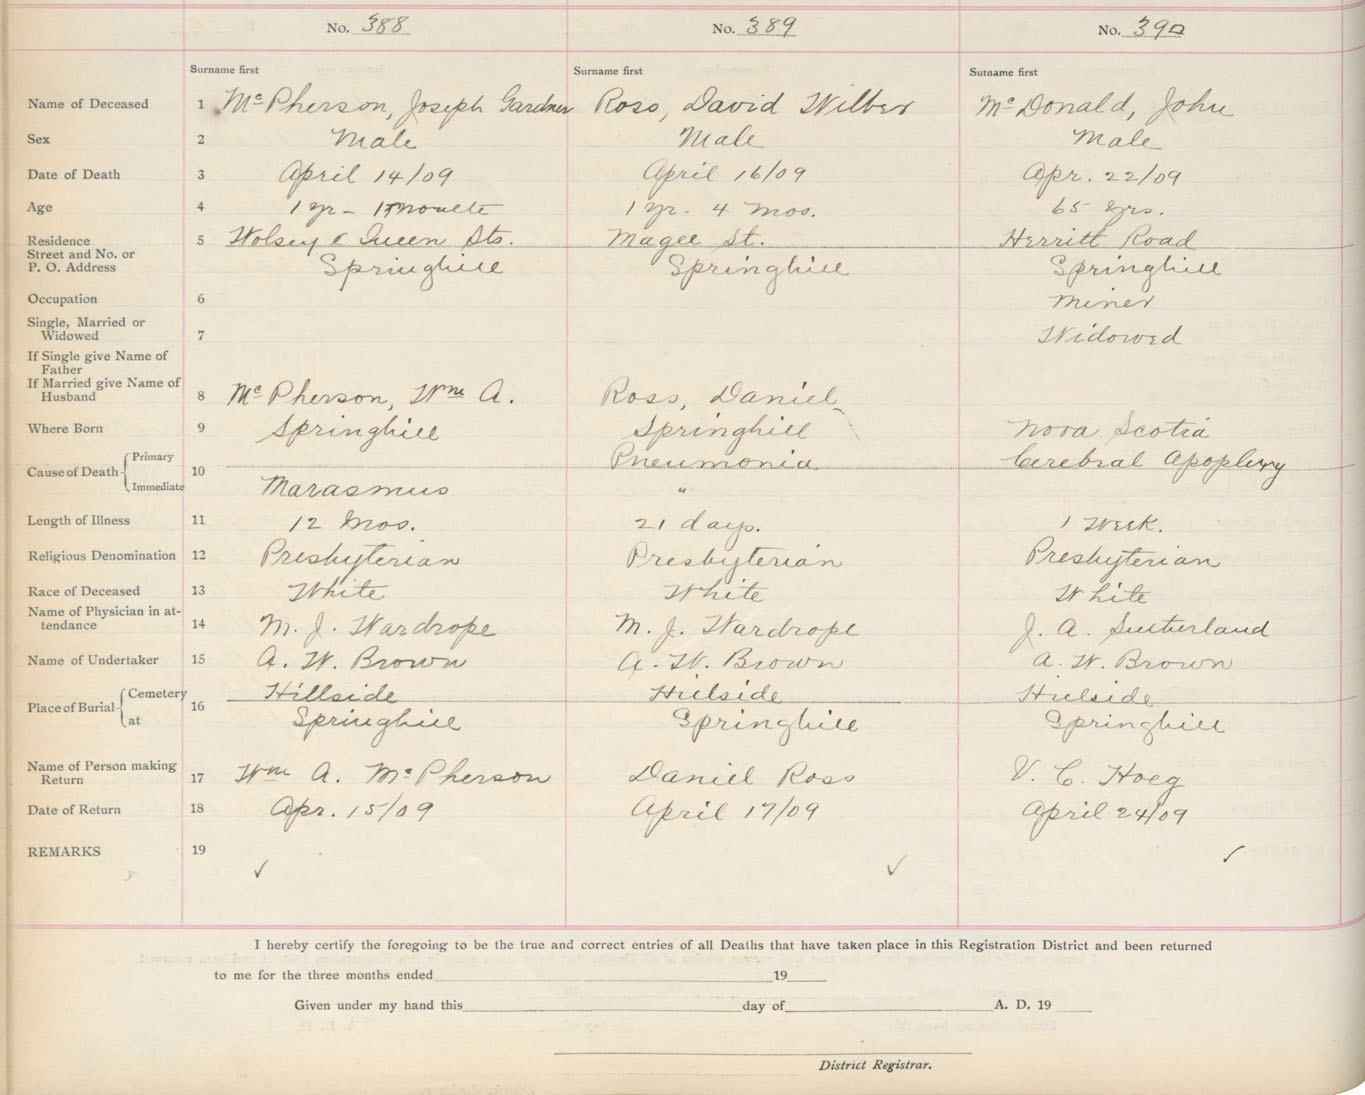 No. 388 No. 389 No. 390
Surname first Surname first Surname first
Name of Deceased 1 McPherson, Joseph Gardner Ross, David Wilber McDonald, John
Sex 2 Male Male Male
Date of Death 3 April 14/09 April 16/09 Apr. 22/09
Age 4 1 yr - 1 1 yr. 4 mos. 65 yrs.
Residence 5 Wolsey & Queen Sts. Magee St. Herritt Road
Street and No. or
P. O. Address Springhill Springhill Springhill
Occupation 6 Miner
Single, Married or
Widowed 7 Widowed
If Single give Name of
Father
If Married give Name of
Husband 8 McPherson, Wm A. Ross, Daniel
Where Born 9 Springhill Springhill Nova Scotia
Cause of Death Primary 10 Pneumonia Cerebral Apoplexy
Immediate Marasmus "
Length of Illness 11 12 Mos. 21 days. 1 Week.
Religious Denomination 12 Presbyterian Presbyterian Presbyterian
Race of Deceased 13 White White White
Name of Physician in at-
tendance 14 M. J. Wardrope M. J. Wardrope J. A. Sutherland
Name of Undertaker 15 A. W. Brown A. W. Brown A. W. Brown
Place of Burial Cemetery 16 Hillside Hillside Hillside
at Springhill Springhill Springhill
Name of Person making
Return 17 Wm A. McPherson Daniel Ross V. C. Hoeg
Date of Return 18 Apr. 15/09 April 17/09 April 24/09
REMARKS 19 ✓ ✓ ✓
I hereby certify the foregoing to be the true and correct entries of all Deaths that have taken place in this Registration District and been returned
to me for the three months ended 19
Given under my hand this day of A. D. 19
District Registrar.